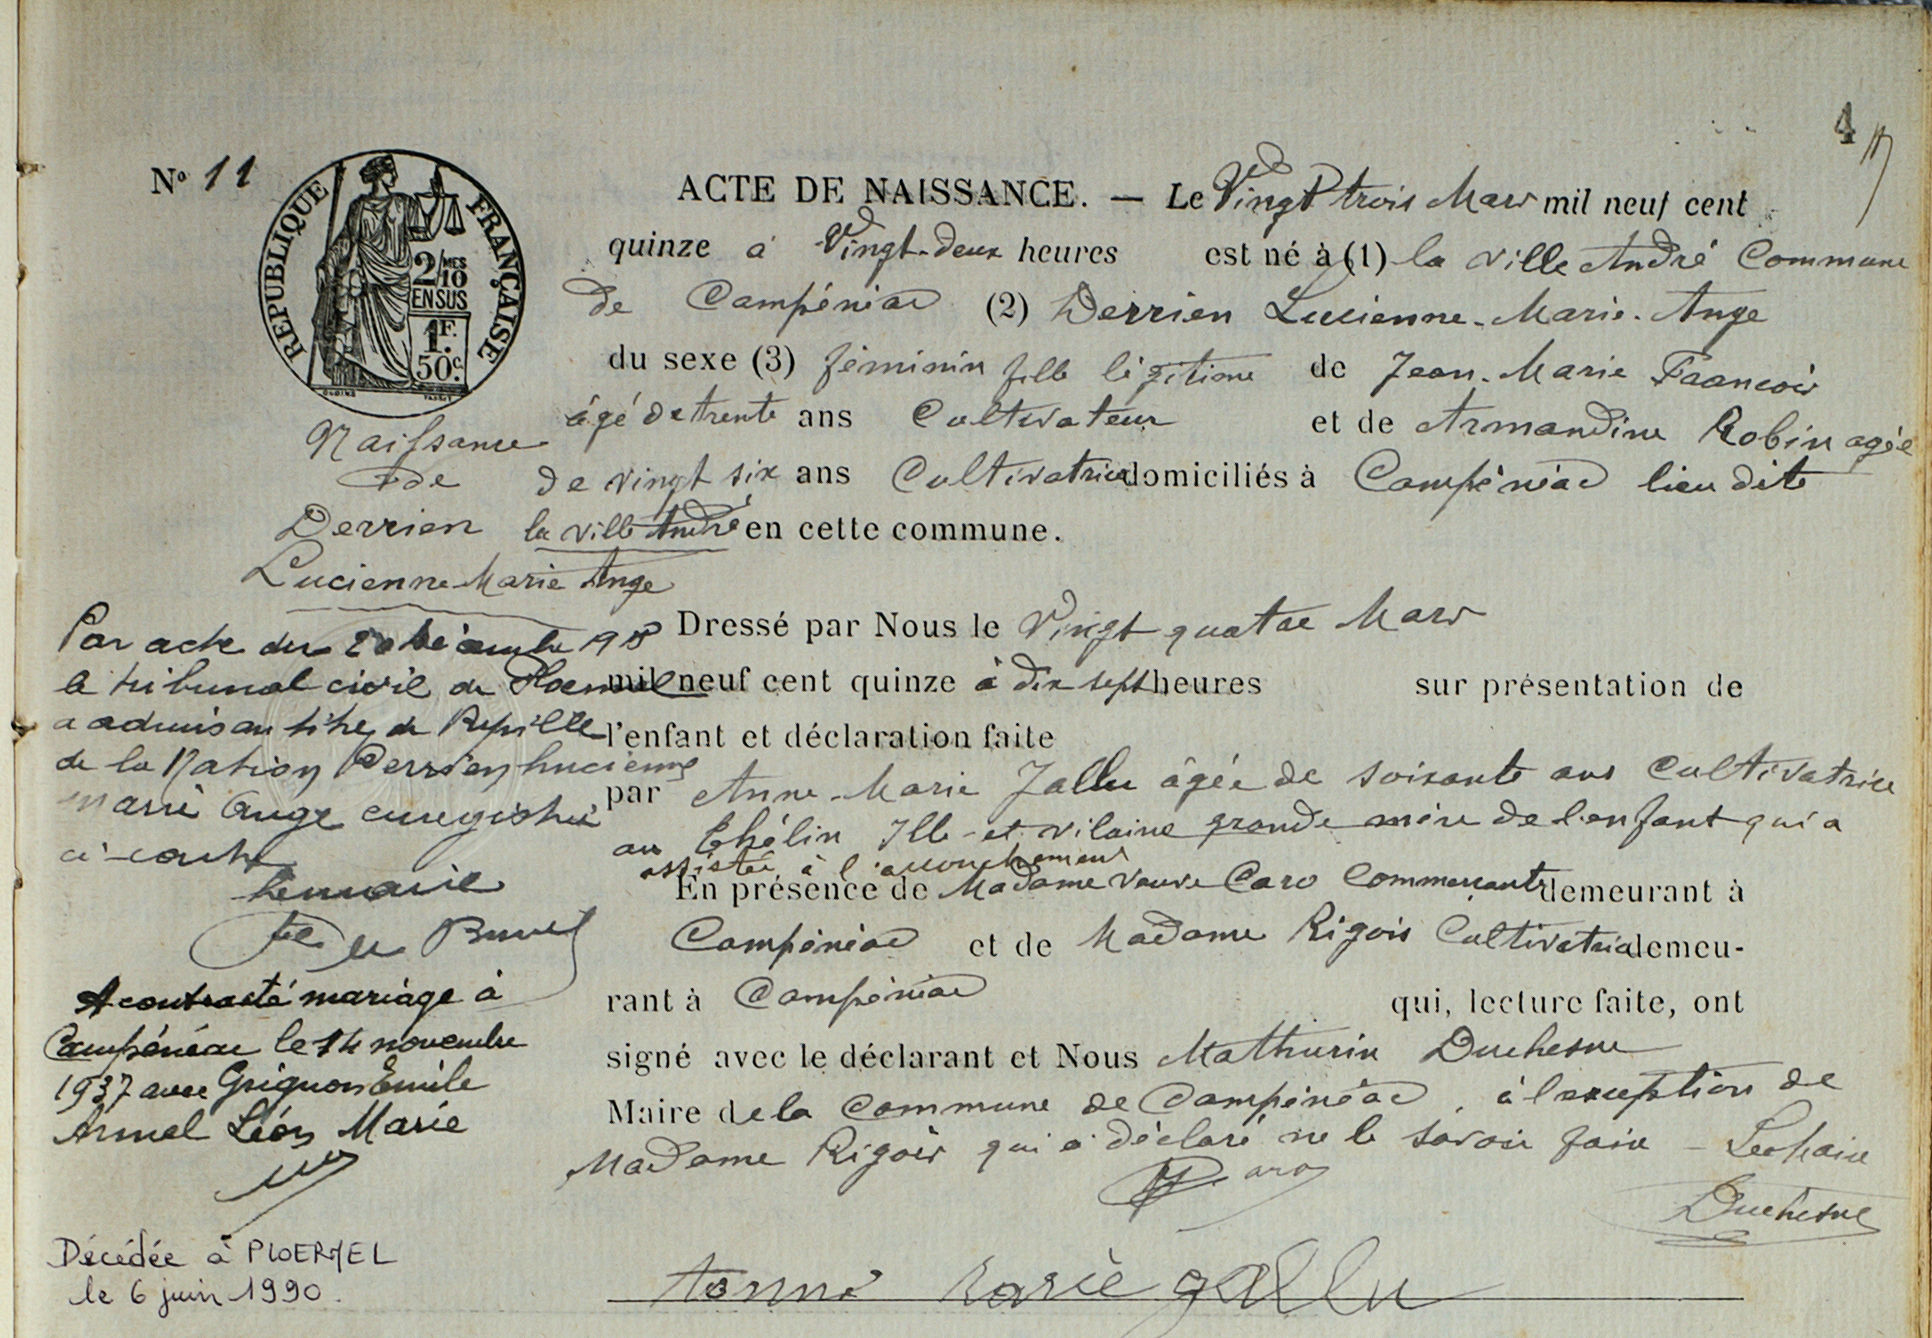 4
Nº 11
RÉPUBLIQUE FRANÇAISE
2/MES
10
EN SUS
1F.
50c.
ACTE DE NAISSANCE. — Le Vingt trois Mars mil neuf cent
quinze à Vingt-deux heures est né à (1) la ville André Commune
de Campénéac (2) Derrien Lucienne-Marie-Ange
du sexe (3) féminin fille légitime de Jean-Marie François
âgé de trente ans Cultivateur et de Armandine Robin agée
de vingt six ans Cultivatrice domiciliés à Campénéac lieu dite
la ville André en cette commune.
Dressé par Nous le Vingt quatre Mars
mil neuf cent quinze à dix sept heures sur présentation de
l'enfant et déclaration faite
par Anne-Marie Jallu âgée de soixante ans Cultivatrice
au Thélin Ille-et-vilaine grande mère de l'enfant qui a
assistée à l'accouchement
En présence de Madame veuve Caro Commerçante demeurant à
Campénéac et de Madame Rigois Cultivatrice demeu-
rant à Campénéac qui, lecture faite, ont
signé avec le déclarant et Nous Mathurin Duchesne
Maire de la Commune de Campénéac, à l'exception de
Madame Rigois qui a déclaré ne le savoir faire – Le Maire
Caro
Duchesne
Marie Jallu
Naissance
de
Derrien
Lucienne Marie Ange
Par acte du 20 décembre 19
le tribunal civil de Ploermel
a admis au titre de Pupille
de la Nation Derrien Lucienne
Marie Ange enregistré
ci-contre
Le maire
A contracté mariage à
Campénéac le 14 novembre
1937 avec Grignon Emile
Armel Léon Marie
Décédée à PLOERMEL
le 6 juin 1990.